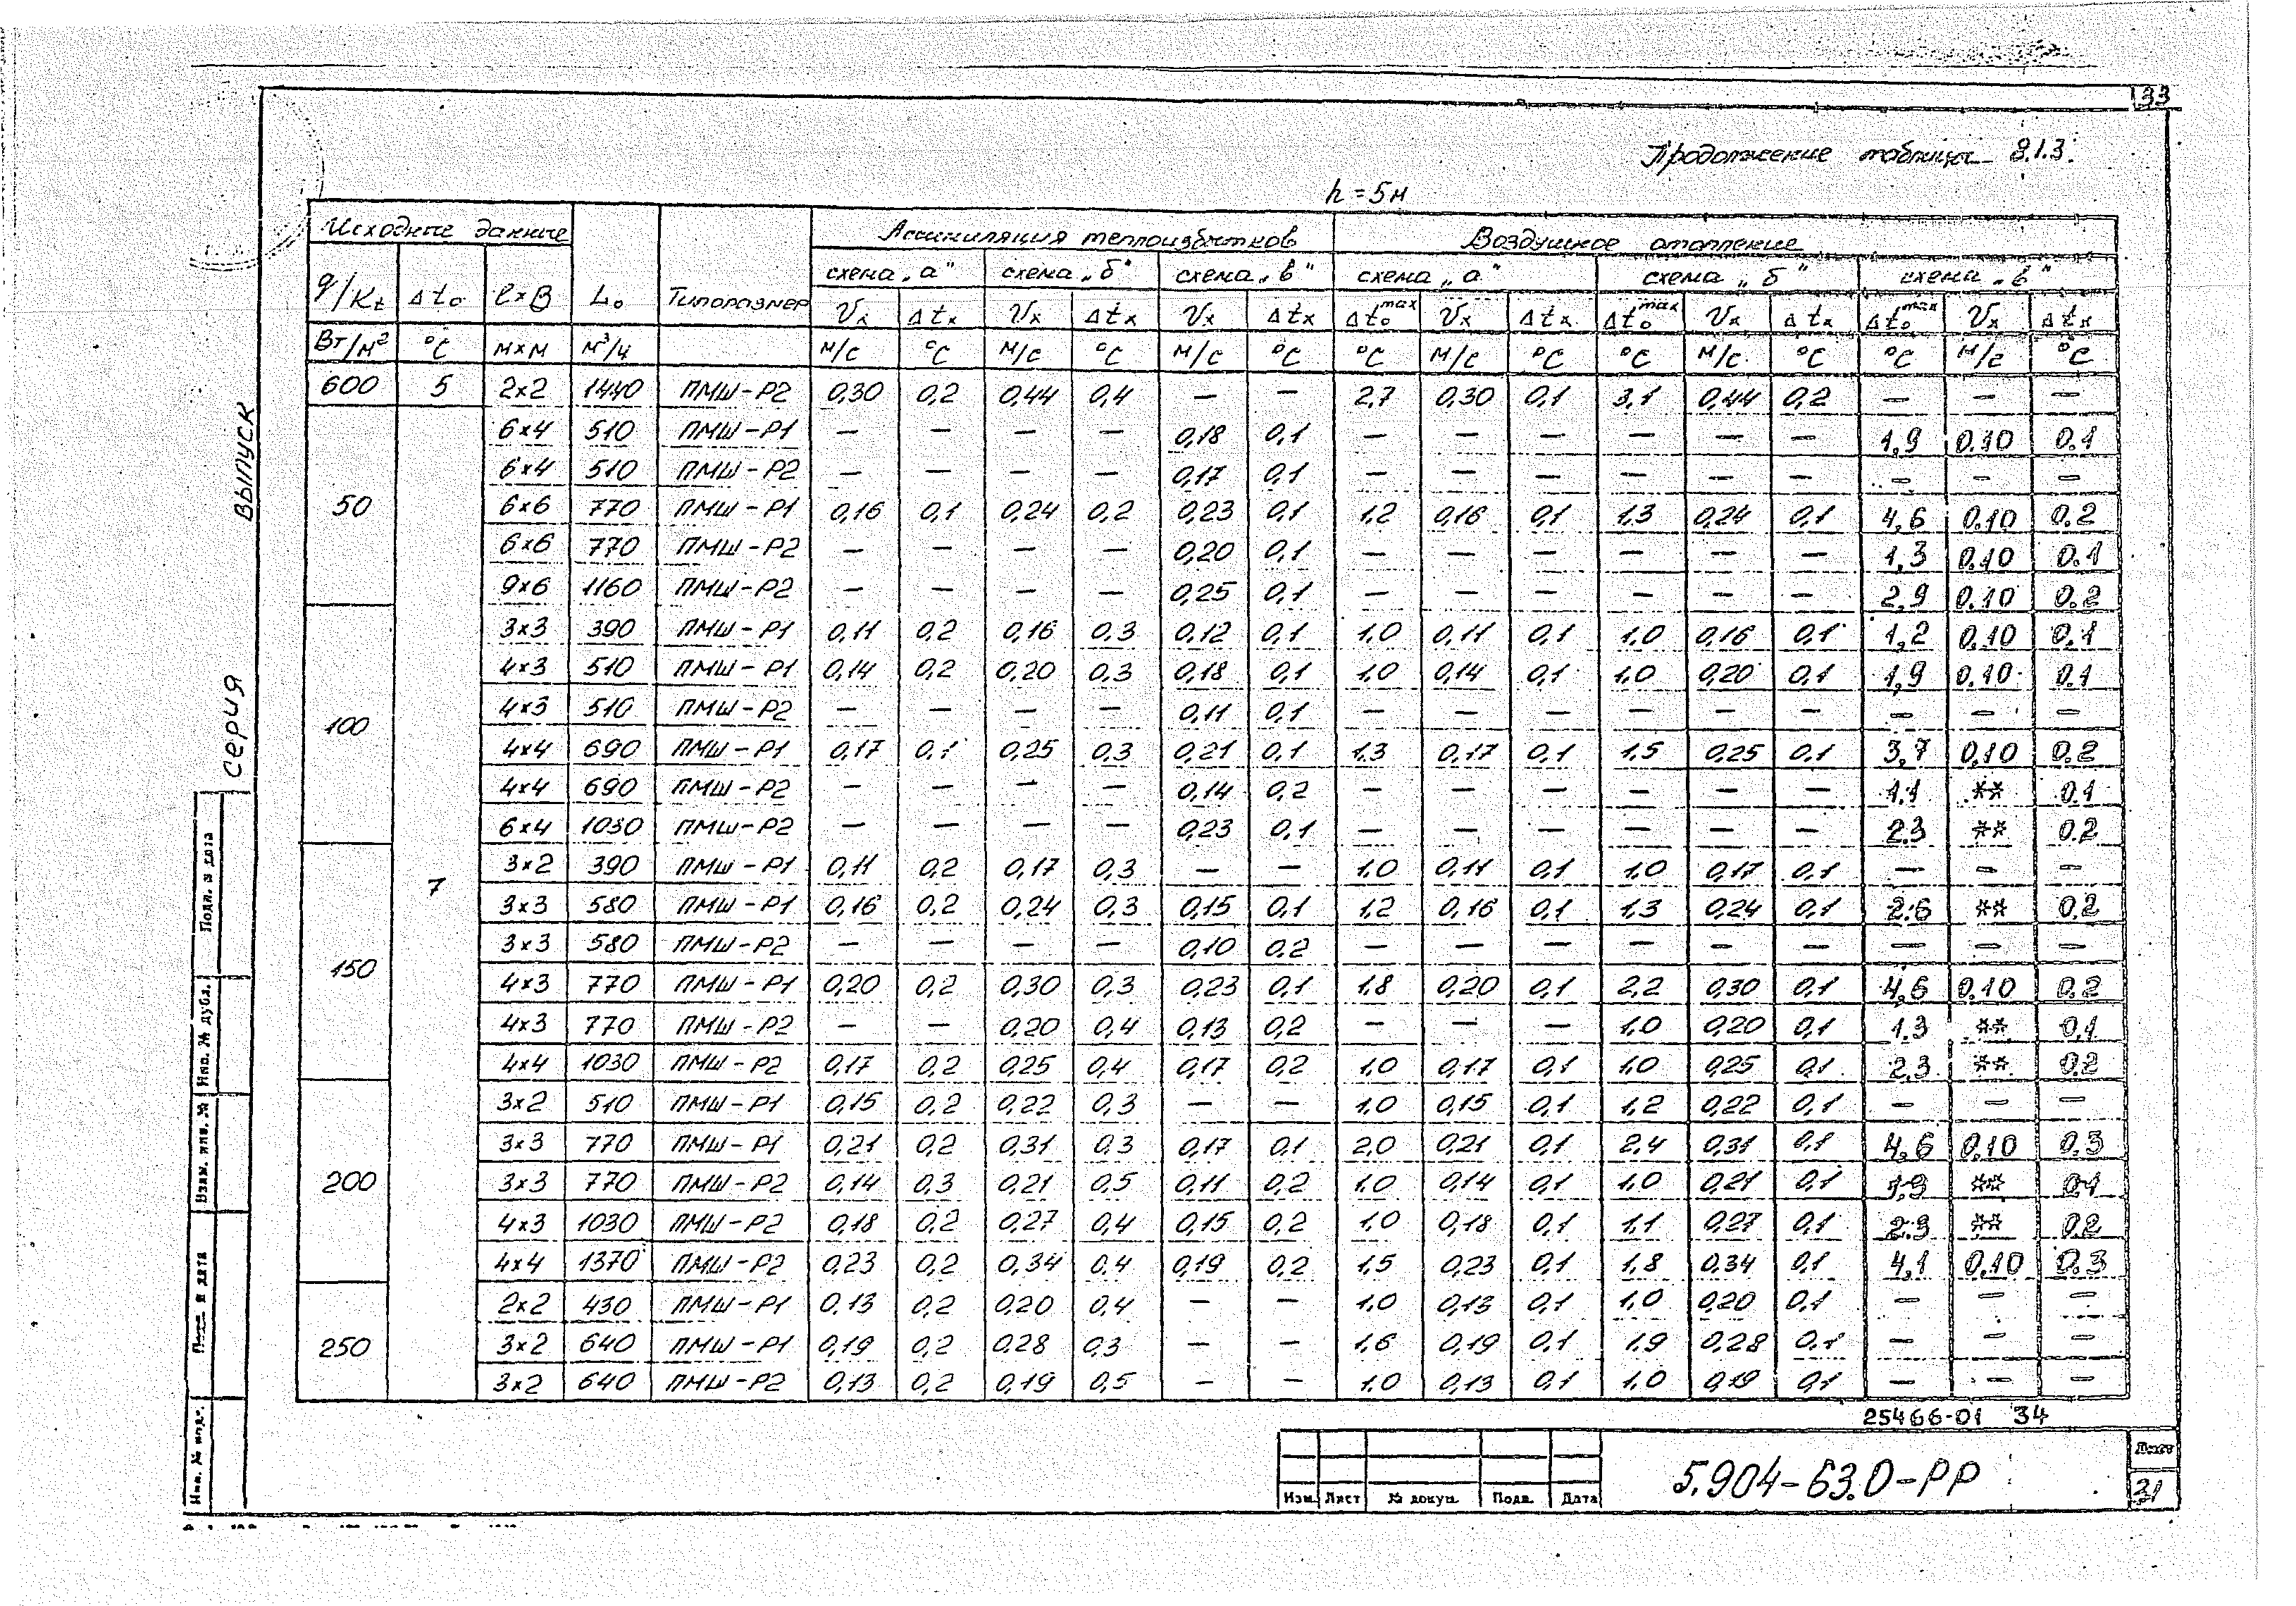 33
Продолжение таблицы 2.1.3.
h = 5м
Исходные данные L₀ Типоразмер Ассимиляция теплоизбытков Воздушное отопление
схема „а" схема „б" схема „в" схема „а" схема „б" схема „в"
q/Kt Δt₀ ℓ×B Vx Δtx Vx Δtx Vx Δtx Δt₀max Vx Δtx Δt₀max Vx Δtx Δt₀max Vx Δtx
Вт/м² °С м×м м³/ч м/с °С м/с °С м/с °С °С м/с °С °С м/с °С °С м/с °С
600 5 2×2 1440 ПМШ-Р2 0,30 0,2 0,44 0,4 — — 2,7 0,30 0,1 3,1 0,44 0,2 — — —
50 7 6×4 510 ПМШ-Р1 — — — — 0,18 0,1 — — — — — — 1,9 0.10 0.1
6×4 510 ПМШ-Р2 — — — — 0,17 0,1 — — — — — — — — —
6×6 770 ПМШ-Р1 0,16 0,1 0,24 0,2 0,23 0,1 1,2 0,16 0,1 1,3 0,24 0,1 4,6 0.10 0.2
6×6 770 ПМШ-Р2 — — — — 0,20 0,1 — — — — — — 1,3 0.10 0.1
9×6 1160 ПМШ-Р2 — — — — 0,25 0,1 — — — — — — 2,9 0.10 0.2
100 3×3 390 ПМШ-Р1 0,11 0,2 0,16 0,3 0,12 0,1 1,0 0,11 0,1 1,0 0,16 0,1 1,2 0.10 0.1
4×3 510 ПМШ-Р1 0,14 0,2 0,20 0,3 0,18 0,1 1,0 0,14 0,1 1,0 0,20 0,1 1,9 0.10 0.1
4×3 510 ПМШ-Р2 — — — — 0,11 0,1 — — — — — — — — —
4×4 690 ПМШ-Р1 0,17 0,1 0,25 0,3 0,21 0,1 1,3 0,17 0,1 1,5 0,25 0,1 3,7 0,10 0.2
4×4 690 ПМШ-Р2 — — — — 0,14 0,2 — — — — — — 1.1 ** 0.1
6×4 1030 ПМШ-Р2 — — — — 0,23 0,1 — — — — — — 2.3 ** 0.2
150 3×2 390 ПМШ-Р1 0,11 0,2 0,17 0,3 — — 1,0 0,11 0,1 1,0 0,17 0,1 — — —
3×3 580 ПМШ-Р1 0,16 0,2 0,24 0,3 0,15 0,1 1,2 0,16 0,1 1,3 0,24 0,1 2.6 ** 0.2
3×3 580 ПМШ-Р2 — — — — 0,10 0,2 — — — — — — — — —
4×3 770 ПМШ-Р1 0,20 0,2 0,30 0,3 0,23 0,1 1,8 0,20 0,1 2,2 0,30 0,1 4,6 0.10 0.2
4×3 770 ПМШ-Р2 — — 0,20 0,4 0,13 0,2 — — — 1,0 0,20 0,1 1.3 ** 0,1
4×4 1030 ПМШ-Р2 0,17 0,2 0,25 0,4 0,17 0,2 1,0 0,17 0,1 1,0 0,25 0,1 2.3 ** 0.2
200 3×2 510 ПМШ-Р1 0,15 0,2 0,22 0,3 — — 1,0 0,15 0,1 1,2 0,22 0,1 — — —
3×3 770 ПМШ-Р1 0,21 0,2 0,31 0,3 0,17 0,1 2,0 0,21 0,1 2,4 0,31 0,1 4,6 0,10 0.3
3×3 770 ПМШ-Р2 0,14 0,3 0,21 0,5 0,11 0,2 1,0 0,14 0,1 1,0 0,21 0,1 1.3 ** 0.1
4×3 1030 ПМШ-Р2 0,18 0,2 0,27 0,4 0,15 0,2 1,0 0,18 0,1 1,1 0,27 0,1 2.3 ** 0.2
4×4 1370 ПМШ-Р2 0,23 0,2 0,34 0,4 0,19 0,2 1,5 0,23 0,1 1,8 0,34 0,1 4,1 0.10 0.3
250 2×2 430 ПМШ-Р1 0,13 0,2 0,20 0,4 — — 1,0 0,13 0,1 1,0 0,20 0,1 — — —
3×2 640 ПМШ-Р1 0,19 0,2 0,28 0,3 — — 1,6 0,19 0,1 1,9 0,28 0,1 — — —
3×2 640 ПМШ-Р2 0,13 0,2 0,19 0,5 — — 1,0 0,13 0,1 1,0 0,19 0,1 — — —
25466-01 34
5.904-63.0-РР
Лист
31
Изм. Лист № докум. Подп. Дата
серия выпуск
Подп. и дата
Инв. № дубл.
Взам. инв. №
Подп. и дата
Инв. № подл.